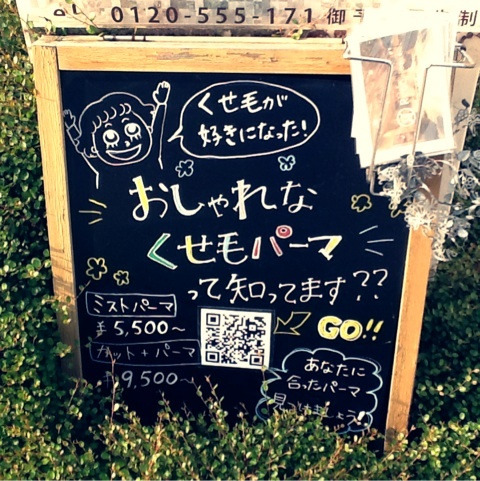 0120-555-171 御
制
くせ毛が
好きになった!
おしゃれな
くせ毛パーマ
って知ってます??
ミストパーマ
¥5,500~
カット+パーマ
¥9,500~
GO!!
あなたに
合ったパーマ